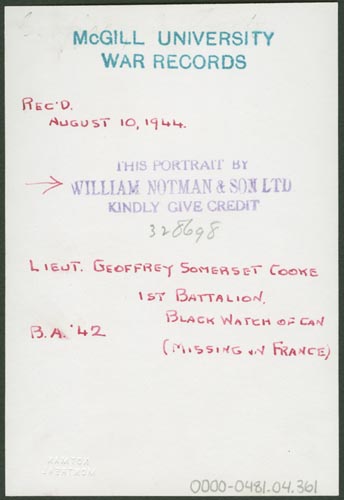 McGILL UNIVERSITY
WAR RECORDS
REC'D.
AUGUST 10, 1944.
THIS PORTRAIT BY
WILLIAM NOTMAN & SON LTD
KINDLY GIVE CREDIT
328698
LIEUT. GEOFFREY SOMERSET COOKE
1ST BATTALION.
BLACK WATCH OF CAN
B.A. '42
(MISSING IN FRANCE)
NOTMAN
MONTREAL
0000-0481.04.361